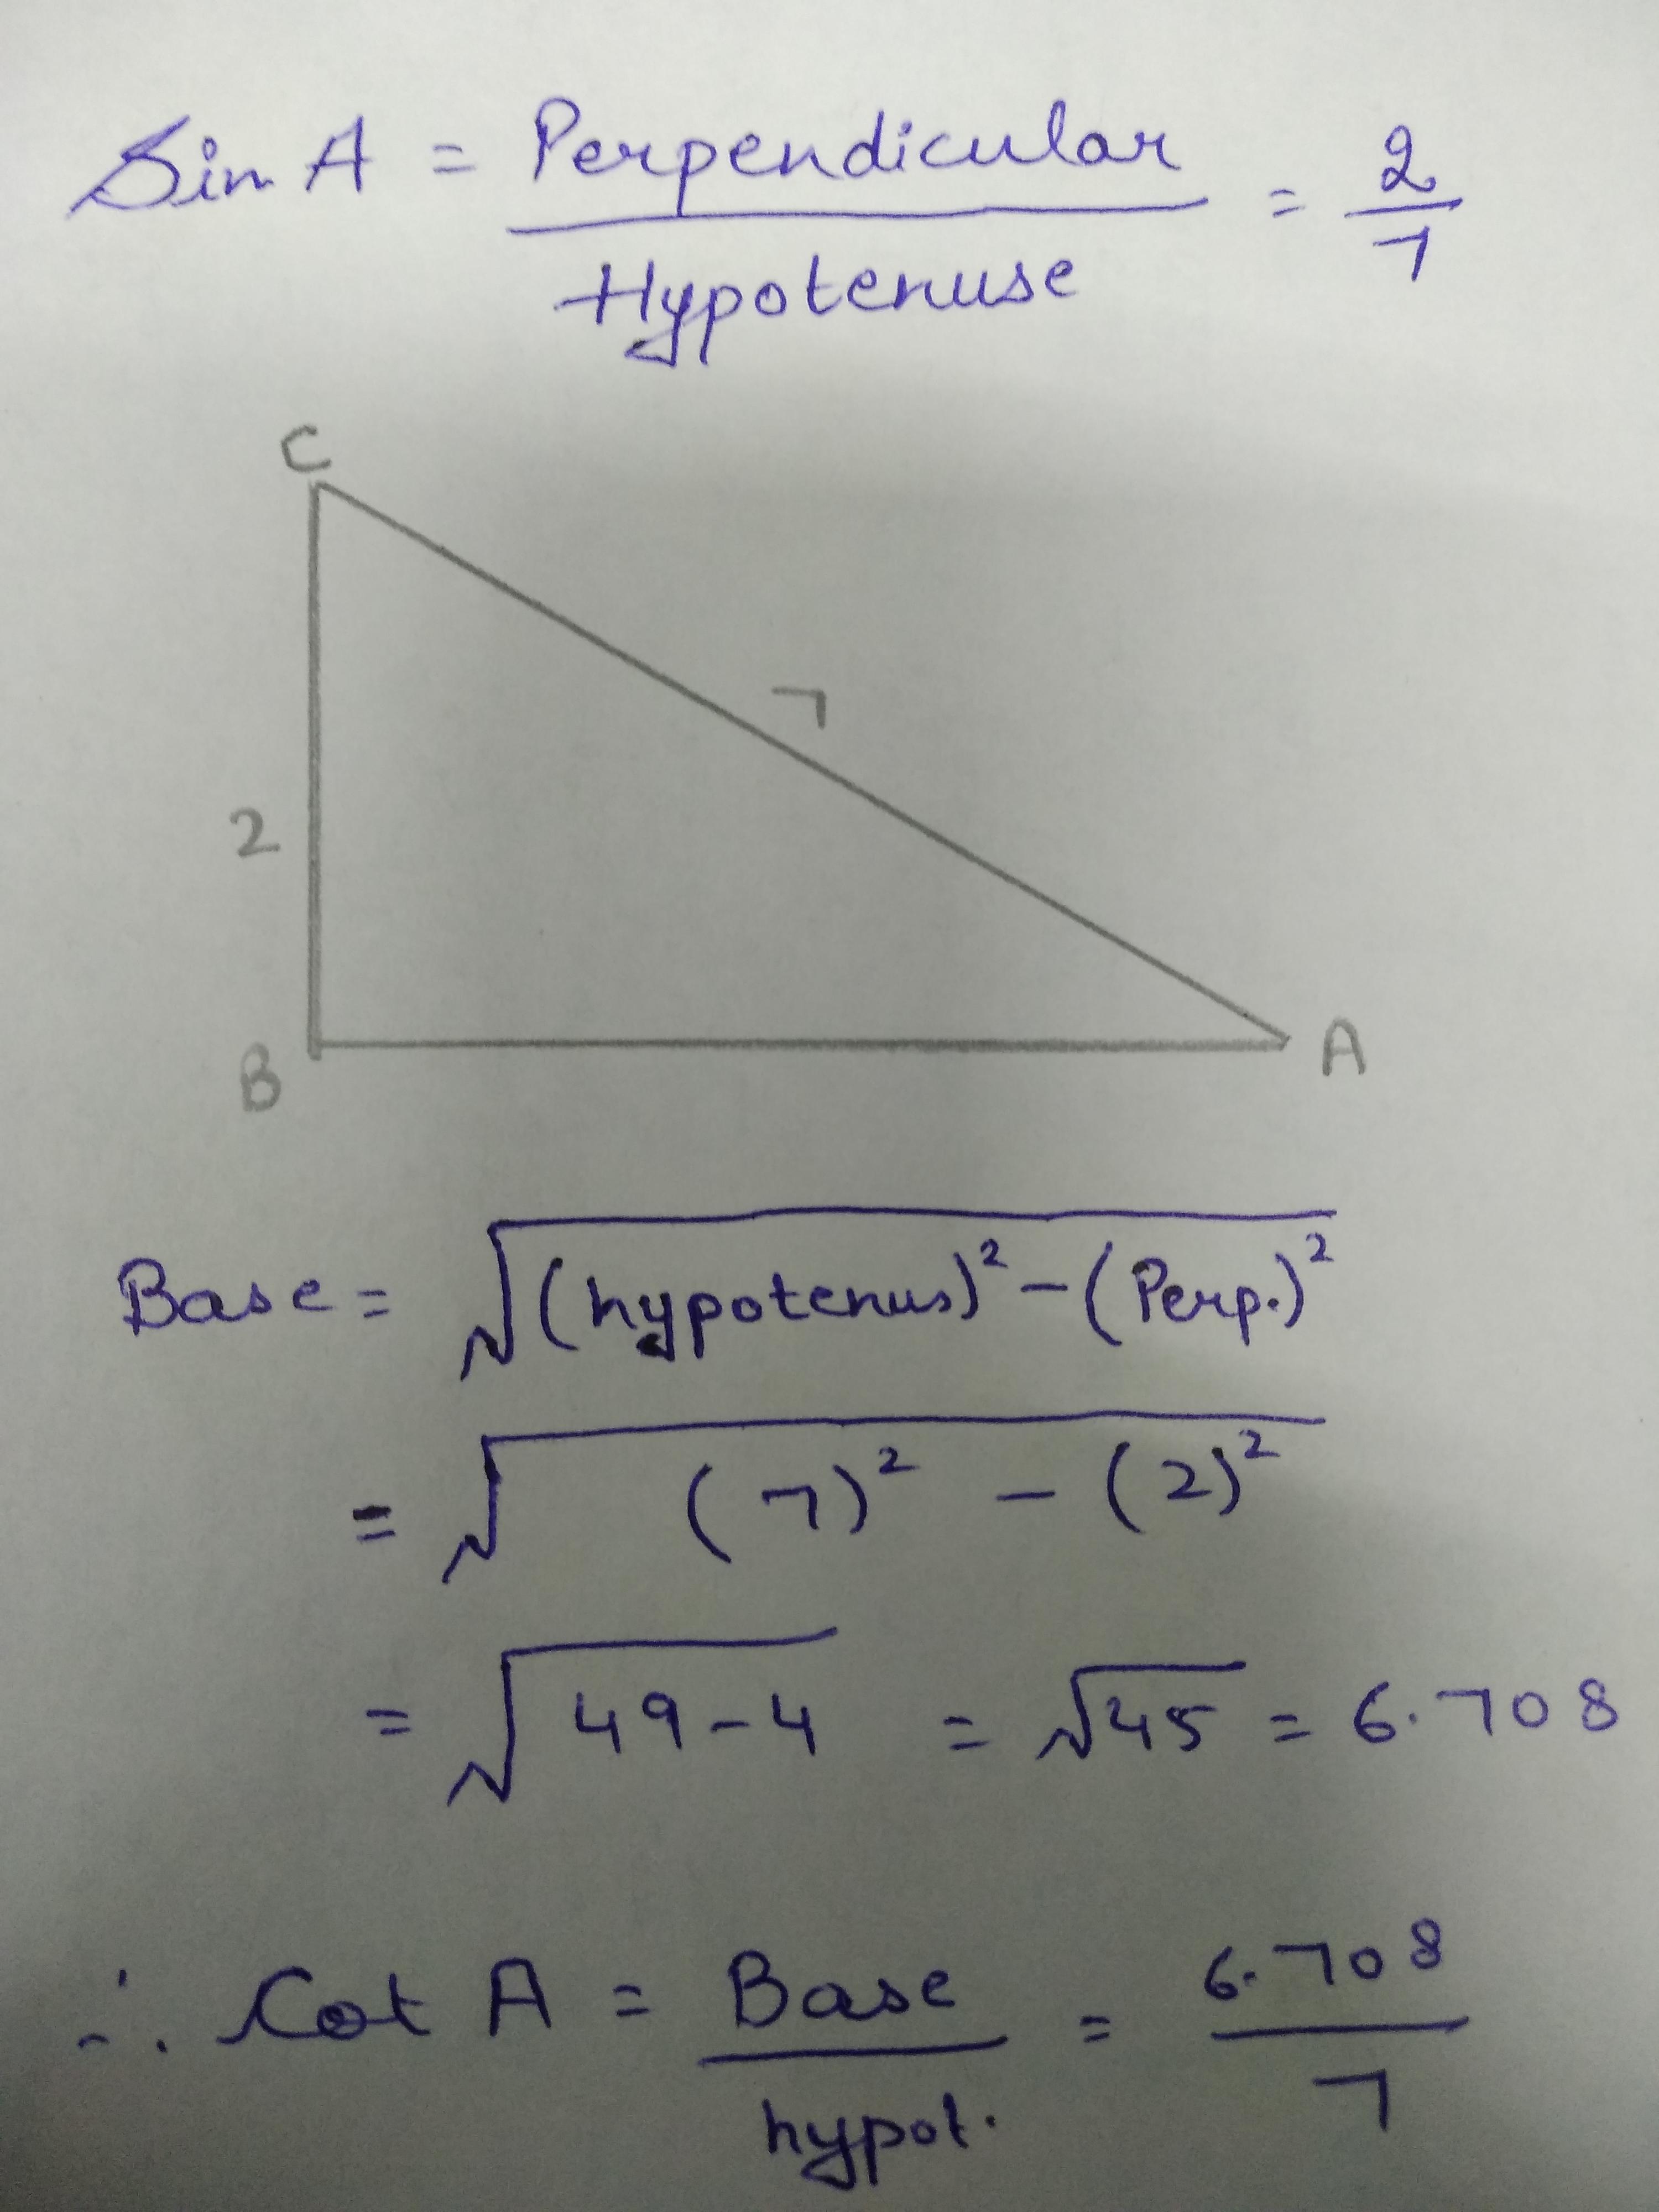 Sin A = Perpendicular / Hypotenuse = 2/7
C
7
2
B
A
Base = √(hypotenus)² - (Perp.)²
= √(7)² - (2)²
= √49-4 = √45 = 6.708
∴ Cot A = Base / hypot. = 6.708 / 7